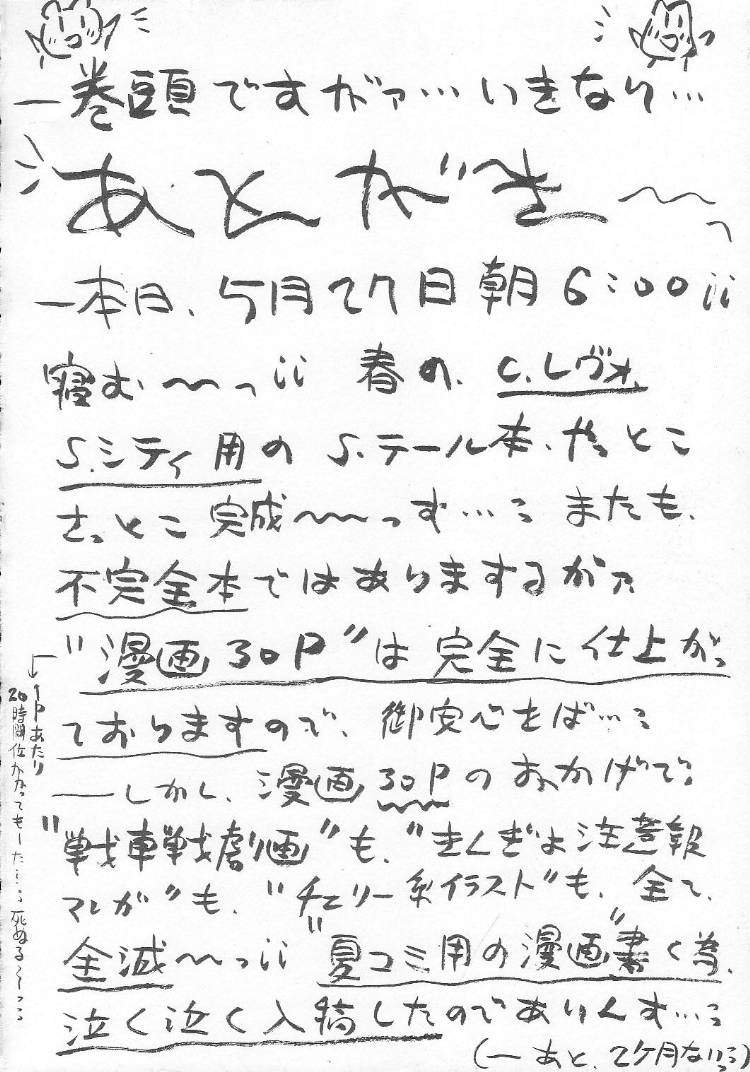 ―巻頭ですがァ…いきなり…
あとがき〜〜っ
―本日、5月27日朝6:00¡¡
寝む〜〜っ¡¡ 春の、C.レヴォ、
S.シティ用の S.テール本、やっとこ
さっとこ完成〜〜〜っす…: またも、
不完全本ではありまするがァ
"漫画30P"は完全に仕上がっ
ておりますので、御安心をば…:
――しかし、漫画30Pのおかげで:
"戦車戦劇画"も、"きんぎょ注意報
マンガ"も、"チェリー系イラスト"も、全て、
全滅〜〜っ¡¡ "夏コミ用の漫画"書く為、
泣く泣く入稿したのでありんす…:
(―あと、2ケ月ないっ:)
←1Pあたり
20時間位かかってもーた…: 死ぬる〜っ: